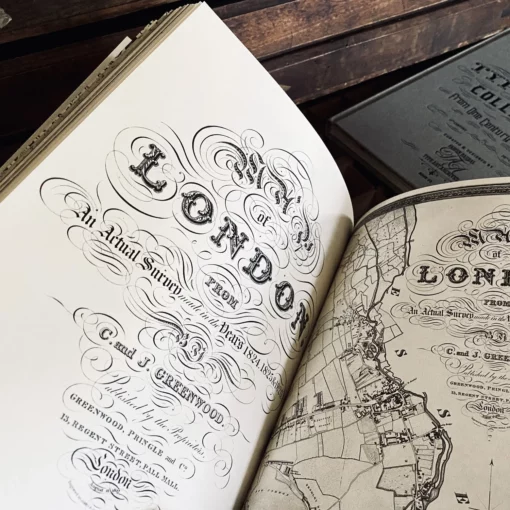 MAP
of
LONDON,
FROM
An Actual Survey made in the Years 1824, 1825
BY
C. and J. GREENWOOD,
Published by the Proprietors
GREENWOOD, PRINGLE and Co.
13, REGENT STREET, PALL MALL
London
MA
of
LOND
FROM
An Actual Survey made in the
BY
C. and J. GREE
Published by the
GREENWOOD, PRINGLE
13, REGENT STREET
London
E
S
S
E
TYP
COLL
From One Century